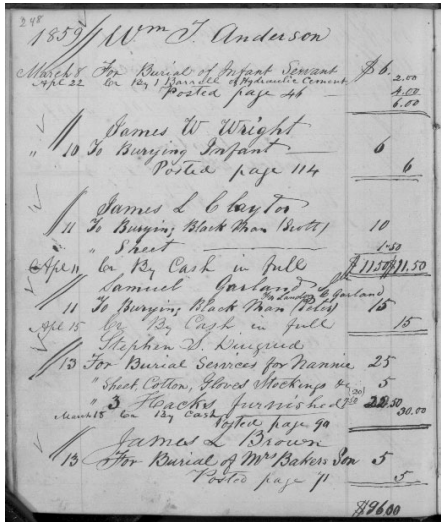 248
1859 // Wm T. Anderson
March 8 For Burial of Infant Servant $6.
Apl 22 Cr By 1 Barrell of Hydraulic Cement 2.00
Posted page 46 4.00
6.00
// James W Wright
" 10 To Burying Infant 6
Posted page 114 6
// James L Clayton
11 To Burying Black Man (Scott) 10
" Sheet 1.50
Apl 11 Cr By Cash in full $11.50 $11.50
// Samuel Garland
C Garland
11 To Burying Black Man 15
Apl 15 Cr By Cash in full 15
Stephen S.
// 13 For Burial Services for Nannie 25
" Sheet, Cotton, Gloves Stockings &c 5
" 3 Hacks furnished 7.50
March 15 Cr By Cash 30.00
Posted page 90
James L Brown
// 13 For Burial of Mrs Bakers Son 5
Posted page 71 5
$96.00